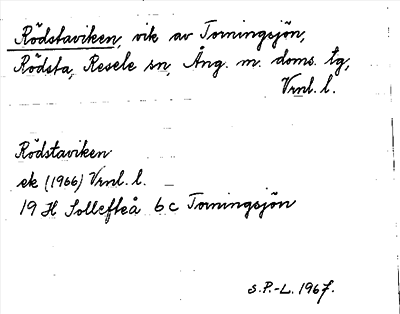 Rödstaviken, vik av Torningsjön,
Rödsta, Resele sn, Ång. m. doms. tg,
Vrnl. l.
Rödstaviken
ek (1966) Vrnl. l.
19 H Sollefteå 6 c Torningsjön
S.P.-L. 1967.